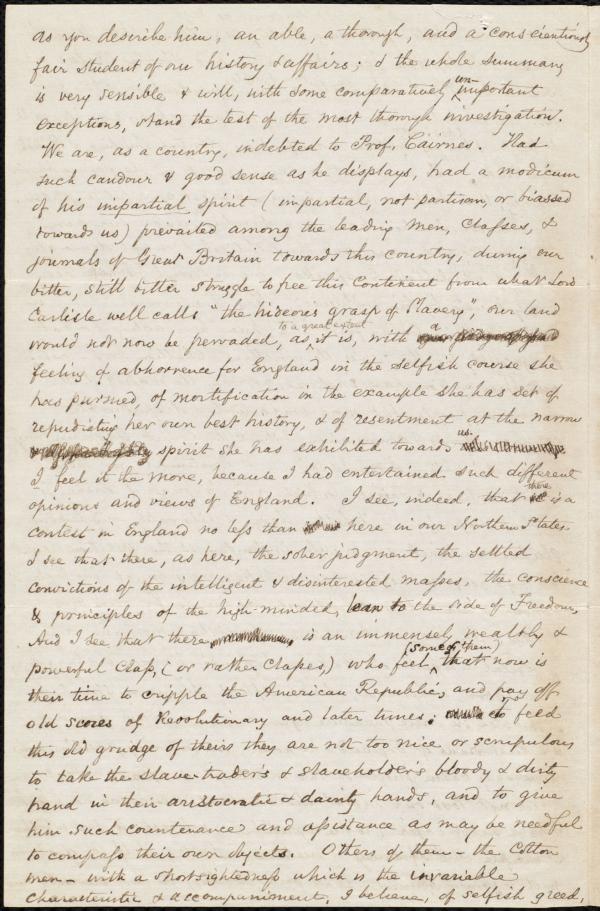 as you describe him, an able, a thorough, and a conscientiously
fair student of our history & affairs; & the whole summary
is very sensible & will, with some comparatively un-important
exceptions, stand the test of the most thorough investigation.
We are, as a country, indebted to Prof. Cairnes. Had
such candour & good sense as he displays, had a modicum
of his impartial spirit (impartial, not partisan, or biassed
towards us) prevailed among the leading men, classes, &
journals of Great Britain towards this country, during our
bitter, still bitter struggle to free this Continent from what Lord
Carlisle well calls "the hideous grasp of Slavery", our land
would not now be pervaded, to a great extent as it is, with a
feeling of abhorrence for England in the selfish course she
has pursued, of mortification in the example she has set of
repudiating her own best history, & of resentment at the narrow
spirit she has exhibited towards us.
I feel it the more, because I had entertained such different
opinions and views of England. I see, indeed, that there is a
contest in England no less than here in our Northern States.
I see that there, as here, the sober judgment, the settled
convictions of the intelligent & disinterested masses, the conscience
& principles of the high-minded, lean to the side of Freedom,
And I see that there is an immensely wealthy &
powerful class, (or rather classes,) who feel, (some of them) that now is
their time to cripple the American Republic, and pay off
old scores of Revolutionary and later times; to feed
this old grudge of theirs they are not too nice or scrupulous
to take the slave-trader's & slaveholder's bloody & dirty
hand in their aristocratic & dainty hands, and to give
him such countenance and assistance as may be needful
to compass their own objects. Others of them - the Cotton
men - with a shortsightedness which is the invariable
characteristic & accompaniment, I believe, of selfish greed,